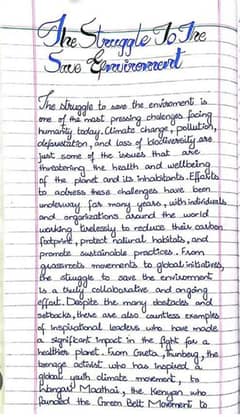 The Struggle To The
Save Environment
The struggle to save the enviroment is
one of the most pressing challenges facing
humanity today. Climate change, pollution,
deforestation, and loss of biodiversity are
just some of the issues that are
threatening the health and wellbeing
of the planet and its inhabitants. Efforts
to address these challenges have been
underway for many years, with individuals
and organizations around the world
working tirelessly to reduce their carbon
footprint, protect natural habitats, and
promote sustainable practices. From
grassroots movements to global initiatives,
the struggle to save the environment
is a truly collaborative and ongoing
effort. Despite the many obstacles and
setbacks, there are also countless examples
of inspirational leaders who have made
a significant impact in the fight for a
healthier planet. From Greta, Thunberg, the
teenage activist who has inspired a
global youth climate movement, to
Wangari Maathai, the Kenyan who
founded the Green Belt Movement to